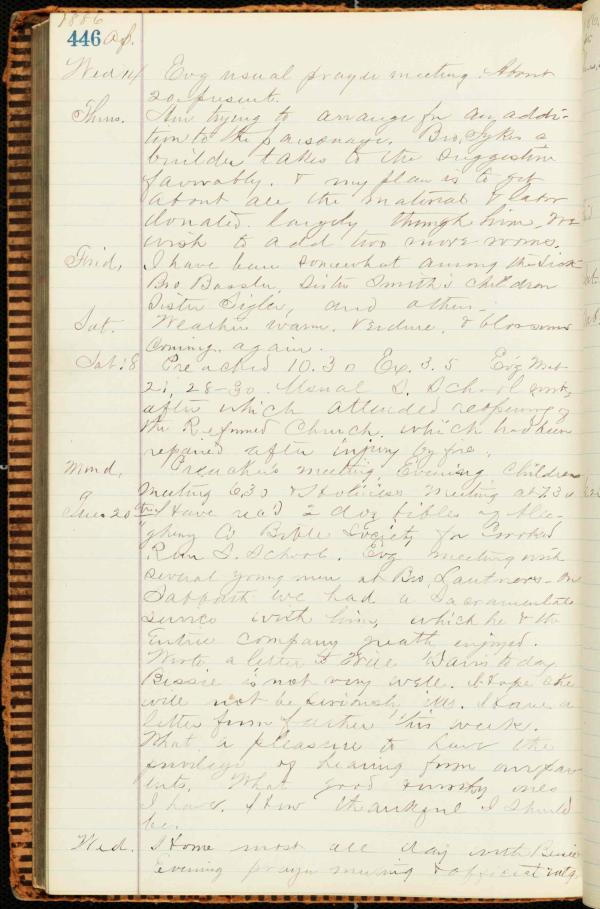 1886
446 Ap.
Wed 14 Evg usual prayer meeting. About
20 present.
Thurs. Am trying to arrange for an addi-
tion to the parsonage. Bro. Sykes a
builder takes to the suggestion
favorably. & my plan is to get
about all the material & labor
donated. largely through him. We
wish to add two more rooms.
Frid, I have been somewhat among the sick
Bro Bassler, Sister Smith's children
Sister Sigler, and others.
Sat. Weather warm. Verdure, & blossoms
coming again.
Sab: 18 Preached 10.30 Ex. 3.5 Evg Mat
21, 28-30. Usual S. School work,
after which attended reopening of
the Reformed Church. which had been
repaired after injury by fire.
Mond, Preachers meeting. Evening Childrens
Meeting 6.30 & Holiness Meeting at 7.30
Tues 20 Have rec'd 2 doz bibles of Alle-
gheny Co Bible Society for Crooked
Run S. School. Evg meeting with
several young men at Bro. Lautners - On
Sabbath we had a Sacramental
service with him, which he & the
entire company greatly enjoyed.
Wrote a letter to today
Bessie is not very well. I Hope she
will not be seriously ill. I have a
letter from father this week.
What a pleasure to have the
privilege of hearing from our par-
ents. What good ones
I have. How thankful I should
be.
Wed. Home most all day with Bessie
Evening prayer meeting & official mtg.